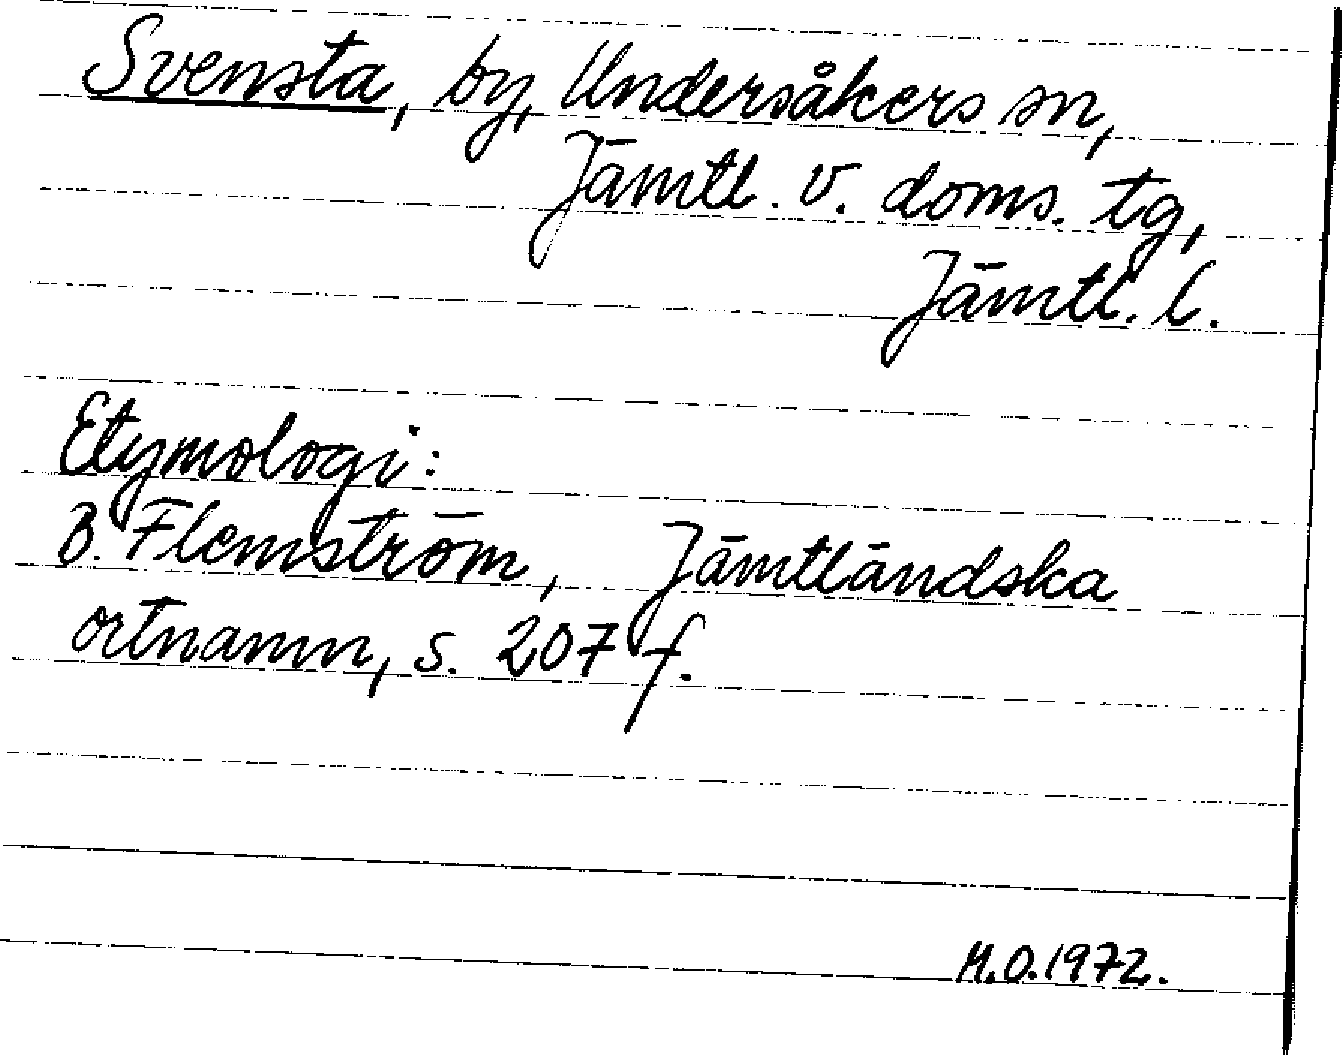 Svensta, by, Undersåkers sn,
Jämtl. v. doms. tg,
Jämtl. l.
Etymologi:
B. Flemström, Jämtländska
ortnamn, s. 207 f.
M.O.1972.